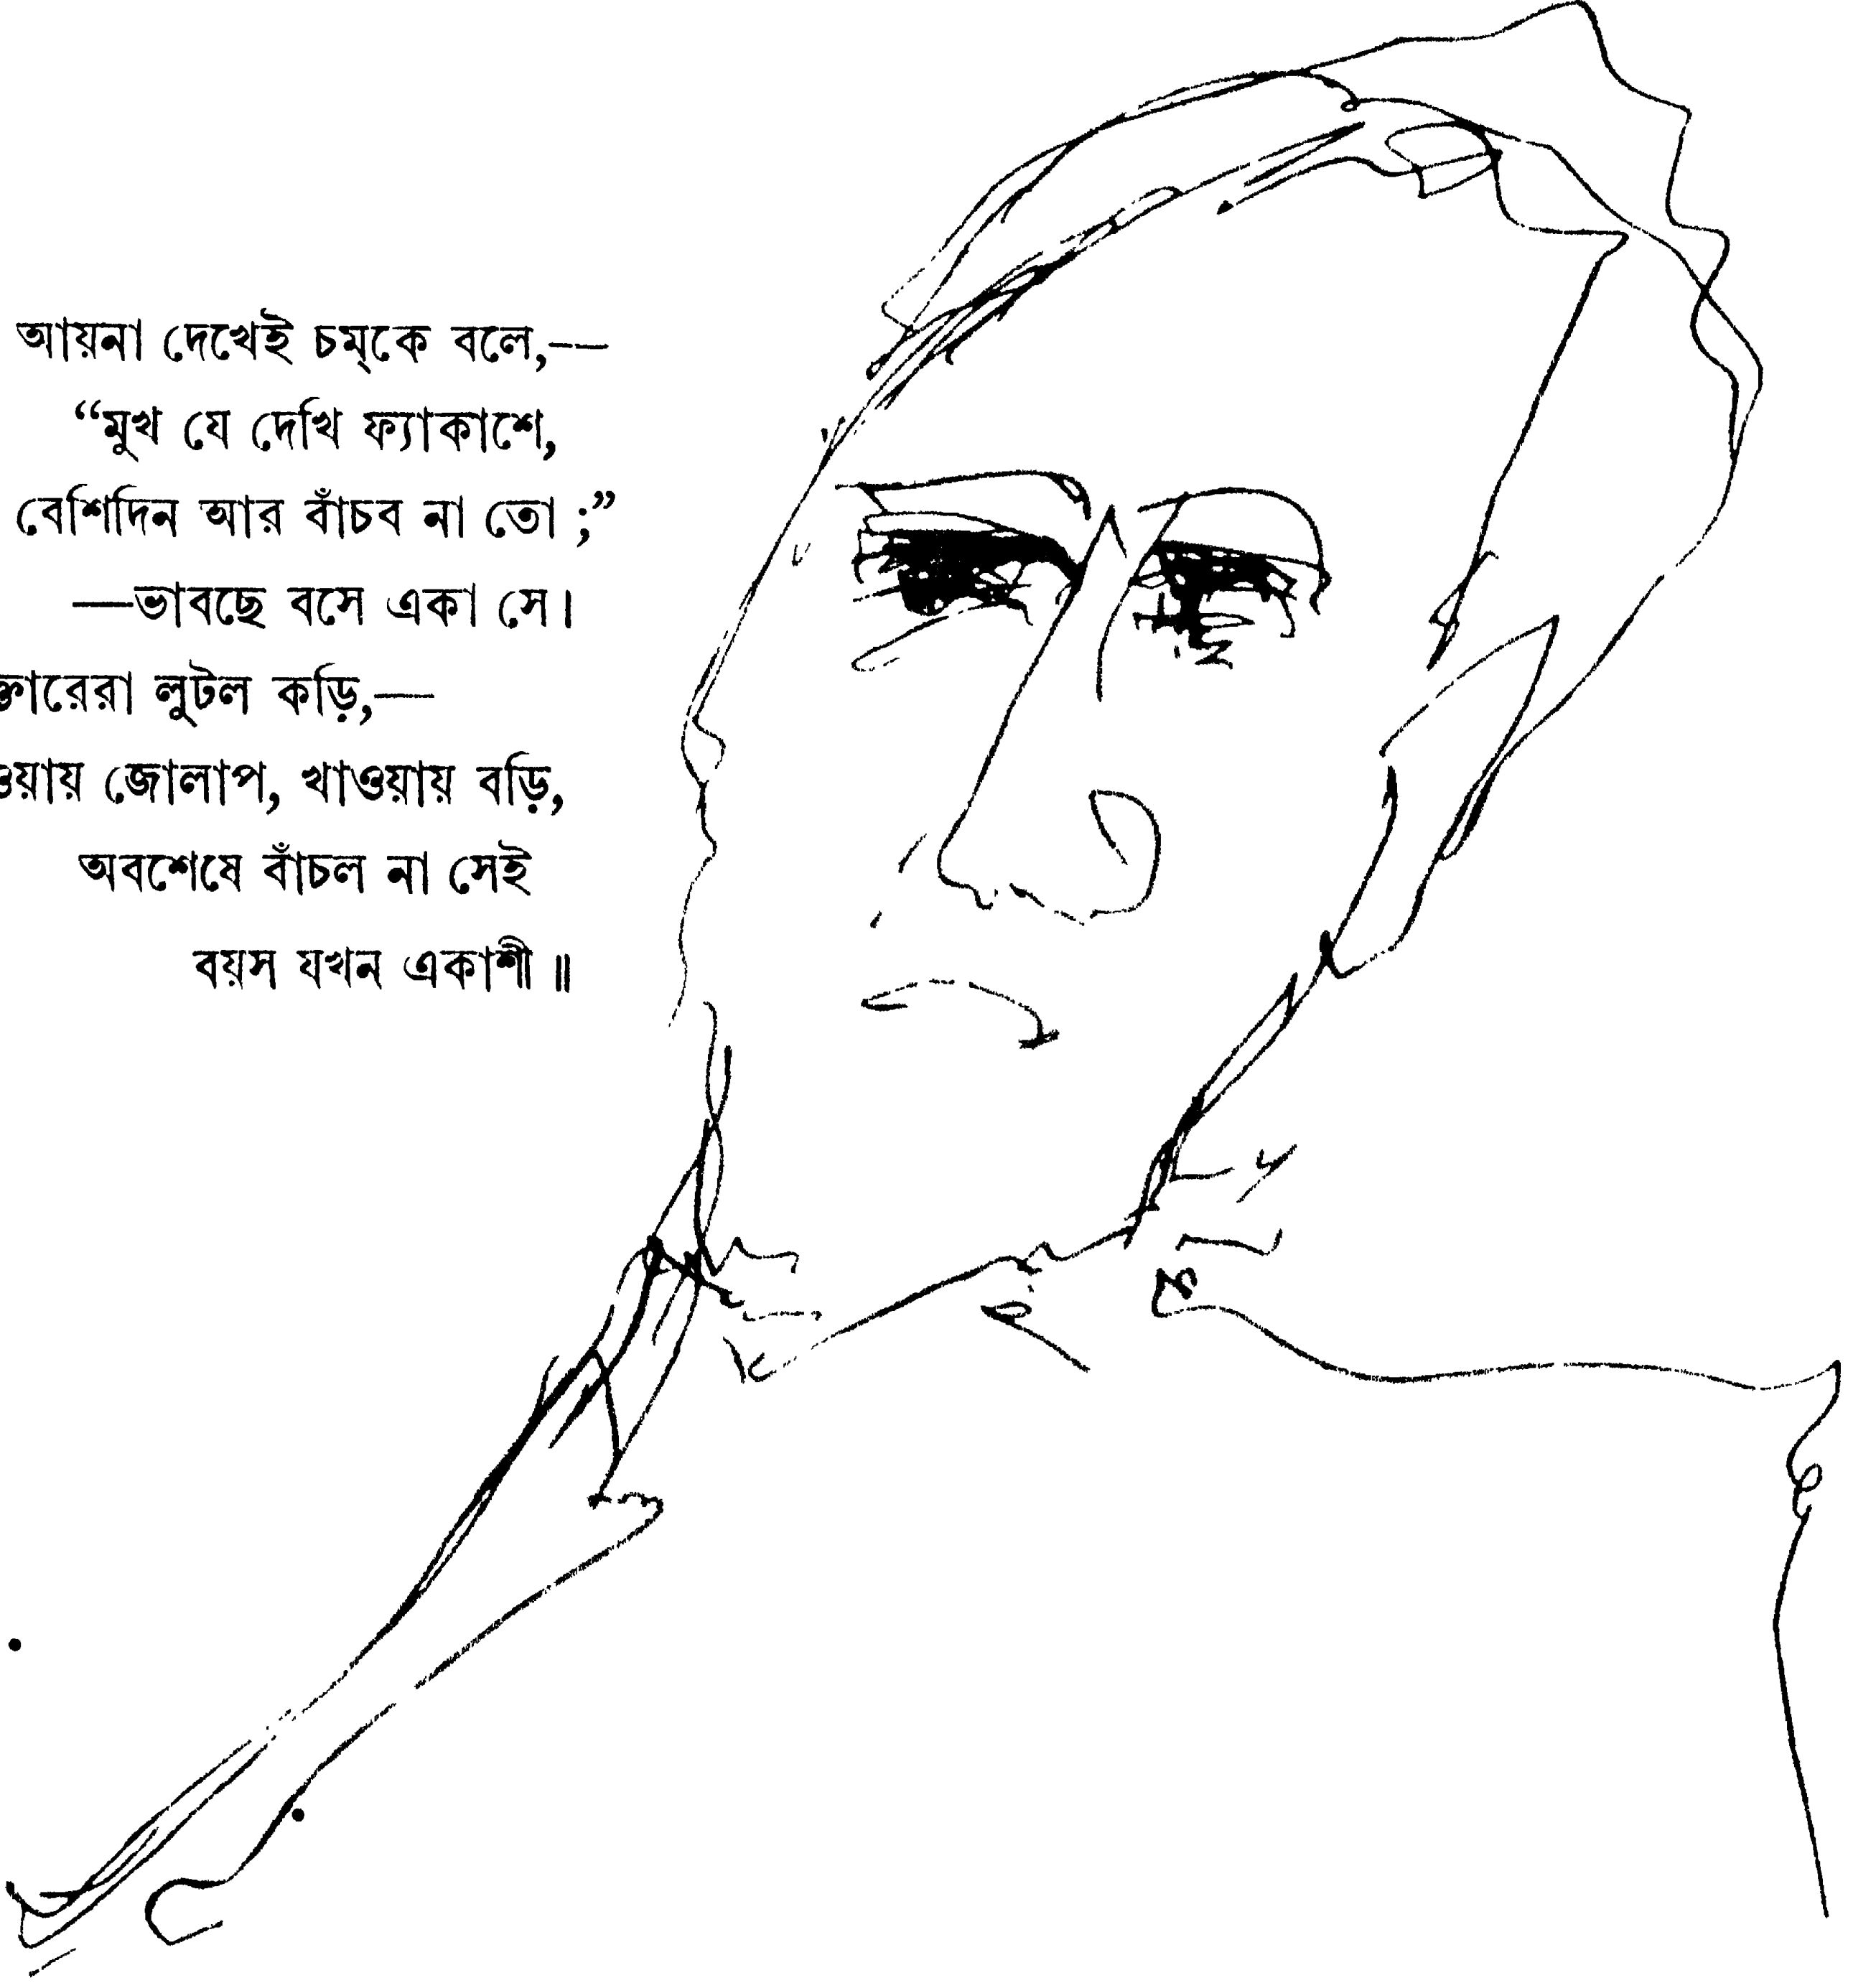 আয়না দেখেই চম্‌কে বলে,—
“মুখ যে দেখি ফ্যাকাশে,
বেশিদিন আর বাঁচব না তো ;”
—ভাবছে বসে একা সে।
ক্তারেরা লুটল কড়ি,—
ওয়ায় জোলাপ, খাওয়ায় বড়ি,
অবশেষে বাঁচল না সেই
বয়স যখন একাশী ॥